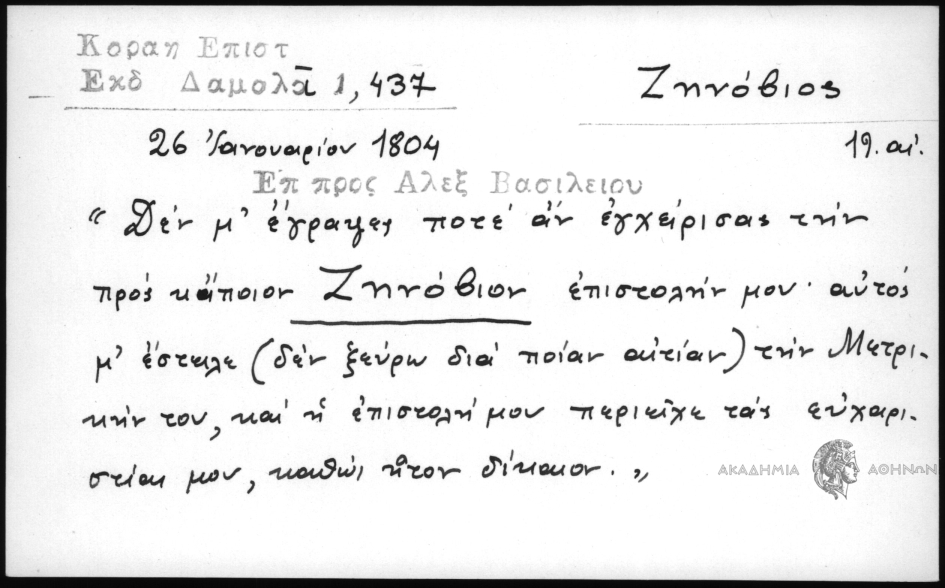 Κοραη Επιστ
Εκδ Δαμολᾶ 1, 437
Ζηνόβιος
26 Ἰανουαρίου 1804
19. αἰ.
Επ προς Αλεξ Βασιλειου
“ Δέν μ’ ἔγραψες ποτέ ἄν ἐγχείρισας τήν
πρός κάποιον Ζηνόβιον ἐπιστολήν μου· αὐτός
μ’ ἔστειλε (δέν ξεύρω διά ποίαν αἰτίαν) τήν Μετρι-
κήν του, καί ἡ ἐπιστολή μου περιεῖχε τάς εὐχαρι-
στίας μου, καθώς ἦτον δίκαιον. „
ΑΚΑΔΗΜΙΑ ΑΘΗΝΩΝ